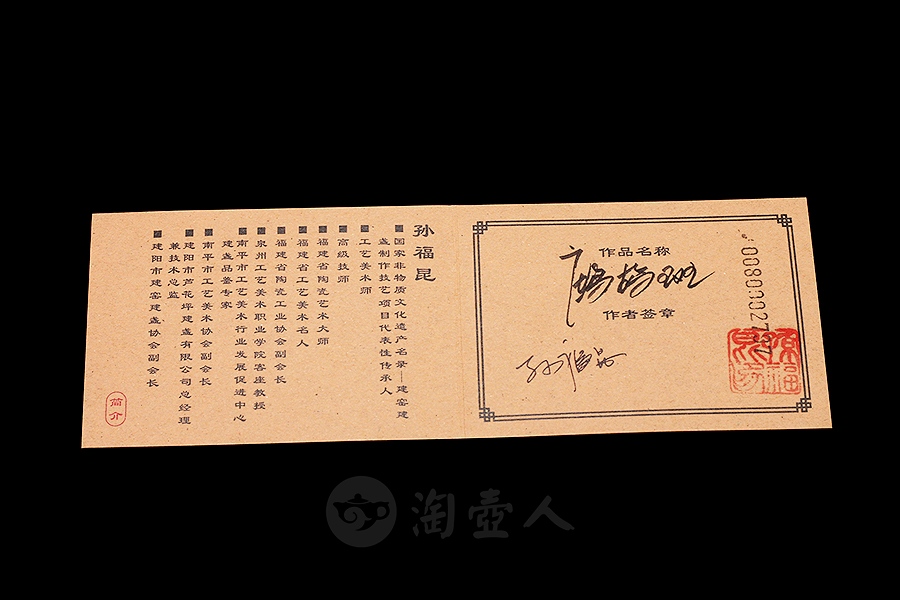 孙福昆
国家非物质文化遗产名录—建窑建
盏制作技艺项目代表性传承人
工艺美术师
高级技师
福建省陶瓷艺术大师
福建省工艺美术名人
福建省陶瓷工业协会副会长
泉州工艺美术职业学院客座教授
南平市工艺美术行业发展促进中心
建盏品鉴专家
南平市工艺美术协会副会长
建阳市芦花坪建盏有限公司总经理
兼技术总监
建阳市建窑建盏协会副会长
简介
作品名称
鹧鸪斑
作者签章
孙福昆
淘壶人